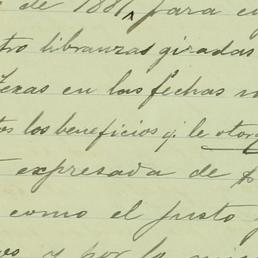 de 1881, para
tro libranzas giradas
Texas en las fechas
los beneficios q. le
expresada de
como el justo
y por la